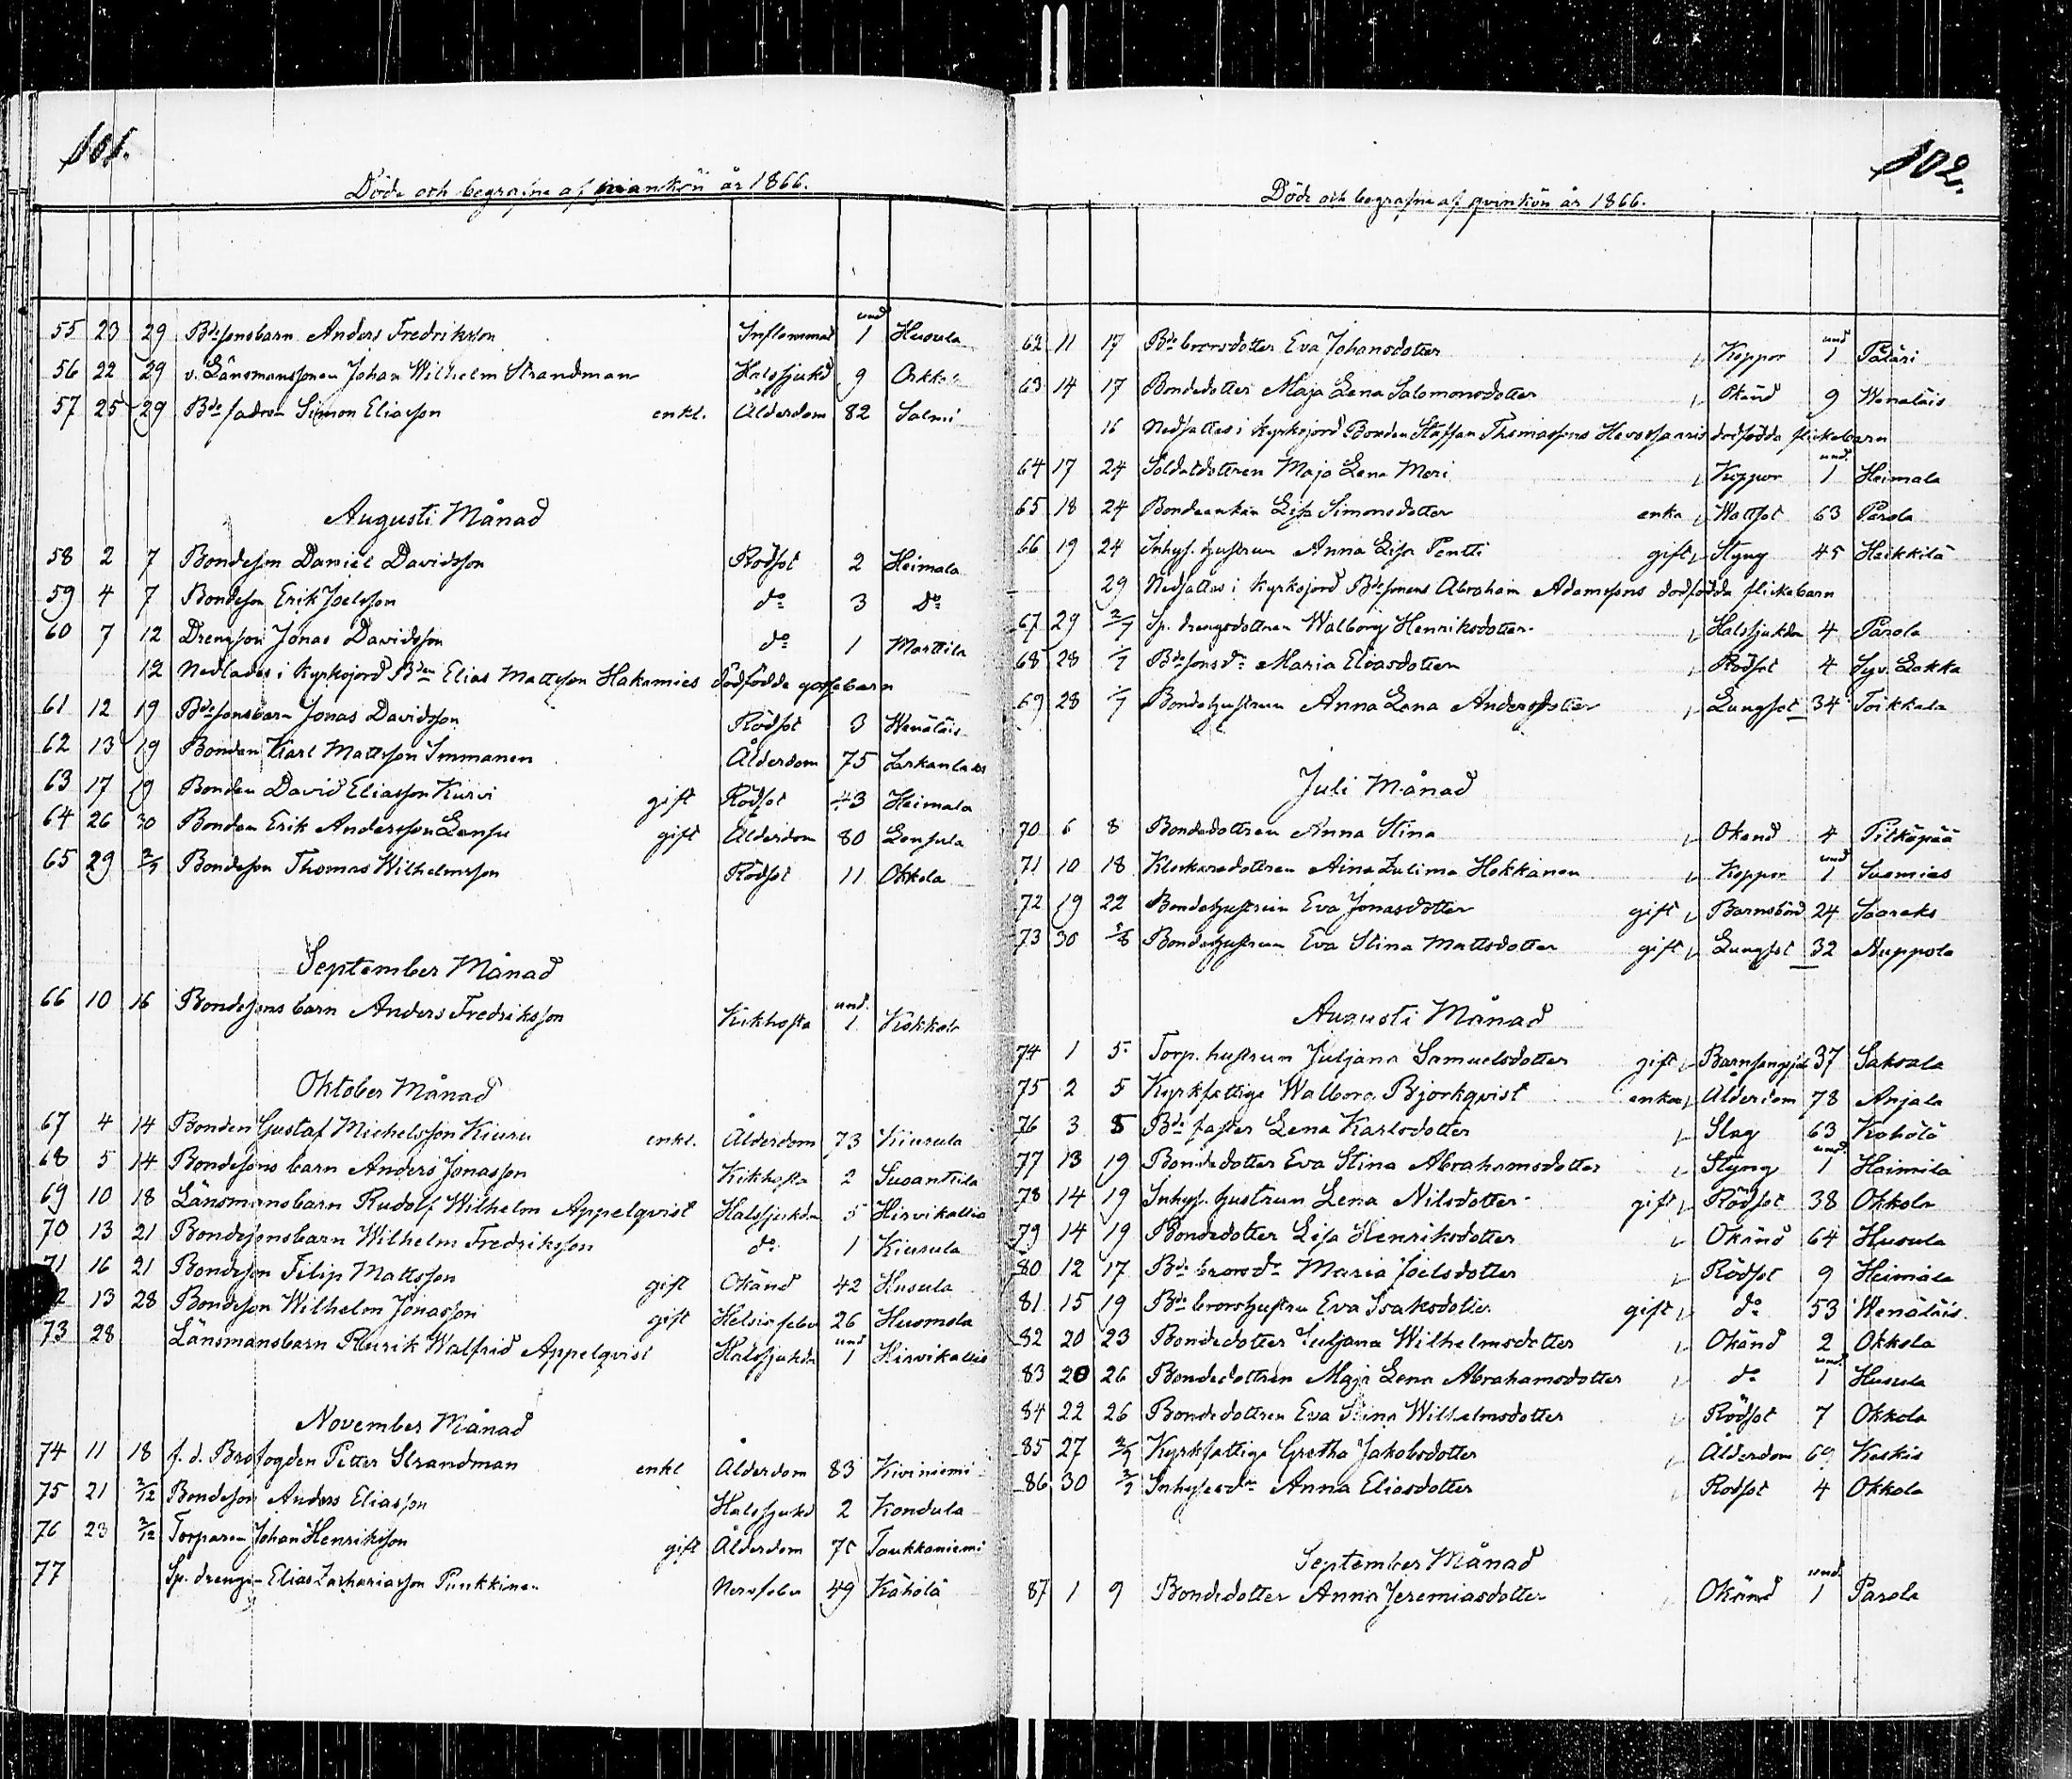 101.
Döde och begrafne af mankön år 1866.
55 23 29 Bdesonsbarn Anders Fredriksson Inflammat und 1 Husula
56 22 29 v. Länsmanssonen Johan Wilhelm Strandman Halssjukd 9
57 25 29 Bde fadren Simon Eliasson enkl. Ålderdom 82 Salmi
Augusti Månad
58 2 7 Bondeson Daniel Davidsson Rödsot 2 Heimala
59 4 7 Bondeson Erik Joelsson do 3 Do
60 7 12 Drengson Jonas Davidsson do 1 Marttila
12 Nedlades i Kyrkojord Bden Elias Mattsson Hakamies dödfödda gossebarn
61 12 19 Bdesonsbarn Jonas Davidsson Rödsot 3 Wenäläis
62 13 19 Bonden Karl Mattsson Immanen Ålderdom 75
63 17 19 Bonden David Eliasson Kurvi gift Rödsot 43 Heimala
64 26 30 Bonden Erik Andersson Lensu gift Ålderdom 80 Lensula
65 29 2/9 Bondeson Thomas Wilhelmsson Rödsot 11 Okkola
September Månad
66 10 16 Bondesons barn Anders Fredriksson Kikhosta und. 1 Kokkola
Oktober Månad
67 4 14 Bonden Gustaf Michelsson Kiuru enkl. Ålderdom 73 Kiurula
68 5 14 Bondesons barn Anders Jonasson Kikhosta 2 Suoanttila
69 10 18 Länsmansbarn Rudolf Wilhelm Appelqvist Halssjukdn 5 Hirvikallio
70 13 21 Bondesonsbarn Wilhelm Fredriksson do 1 Kiurula
71 16 21 Bondeson Filip Mattsson gift Okänd 42 Husula
2 13 28 Bondeson Wilhelm Jonasson gift 26 Huomola
73 28 Länsmansbarn Rurik Walfrid Appelqvist Halssjukdn und 1 Hirvikallio
November Månad
74 11 18 f. d. Brofogden Petter Strandman enkl Ålderdom 83 Kiviniemi
75 21 2/12 Bondeson Anders Eliasson Halssjukd 2 Kondula
76 23 2/12 Torparen Johan Henriksson gift Ålderdom Taukkoniemi
77 Sp. drengen Elias Zachariasson Punkkinen Nervfeber 49 Kähölä
102.
Döde och begrafne af qvinkön år 1866.
62 11 17 Bde brorsdotter Eva Johansdotter Koppor und 1
63 14 17 Bondedotter Maja Lena Salomonsdotter Okänd 9 Wenäläis
16 Nedsattes i Kyrkojord Bonden Staffan Thomassons dödfödda flickebarn
64 17 24 Soldatdottren Maja Lena Meri Koppor und. 1 Heimala
65 18 24 Bondeenkan Lisa Simonsdotter enka Wattsot 63 Parola
66 19 24 Inhys. hustrun Anna Lisa Pentti gift Styng 45 Heikkilä
29 Nedsattes i Kyrkojord Bdesonens Abraham Adamssons dödfödda flickebarn
67 29 2/7 Sp. drengsdottren Walborg Henriksdotter Halssjukdn 4 Parola
68 28 1/7 Bdesonsdr Maria Eliasdotter Rödsot 4 Syv. Lakka
69 28 1/7 Bondehustrun Anna Lena Andersdotter Lungsot 34 Toikkala
Juli Månad
70 6 8 Bondedottren Anna Stina Okänd 4 Pitkäpää
71 10 18 Klockaredottren Aina Zulima Hokkanen Koppor und 1 Suomies
72 19 22 Bondehustrun Eva Jonasdotter gift Barnsbörd 24
73 30 5/8 Bondehustrun Eva Stina Mattsdotter gift Lungsot 32 Nuppola
Augusti Månad
74 1 5 Torp. hustrun Juljana Samuelsdotter gift 37 Saksala
75 2 5 Kyrkfattiga Walborg Björkqvist enka Ålderdom 78 Anjala
76 3 8 Bde faster Lena Karlsdotter Slag 63 Kähölä
77 13 19 Bondedotter Eva Stina Abrahamsdotter Styng und. 1 Haimila
78 14 19 Inhys. hustrun Lena Nilsdotter gift Rödsot 38 Okkola
79 14 19 Bondedotter Lisa Henriksdotter Okänd 64 Husula
80 12 17 Bde brorsdr Maria Joelsdotter Rödsot 9 Heimala
81 15 19 Bde brorshustru Eva Isaksdotter gift do 53 Wenäläis.
82 20 23 Bondedotter Juljana Wilhelmsdotter Okänd 2 Okkola
83 20 26 Bondedottren Maja Lena Abrahamsdotter do und. 1 Husula
84 22 26 Bondedottren Eva Stina Wilhelmsdotter Rödsot 7 Okkola
85 27 2/9 Kyrkfattiga Gretha Jakobsdotter Ålderdom 69 Keskis
86 30 2/9 Inhysesdr Anna Eliasdotter Rödsot 4 Okkola
September Månad
87 1 9 Bondedotter Anna Jeremiasdotter Okänd und. 1 Parola